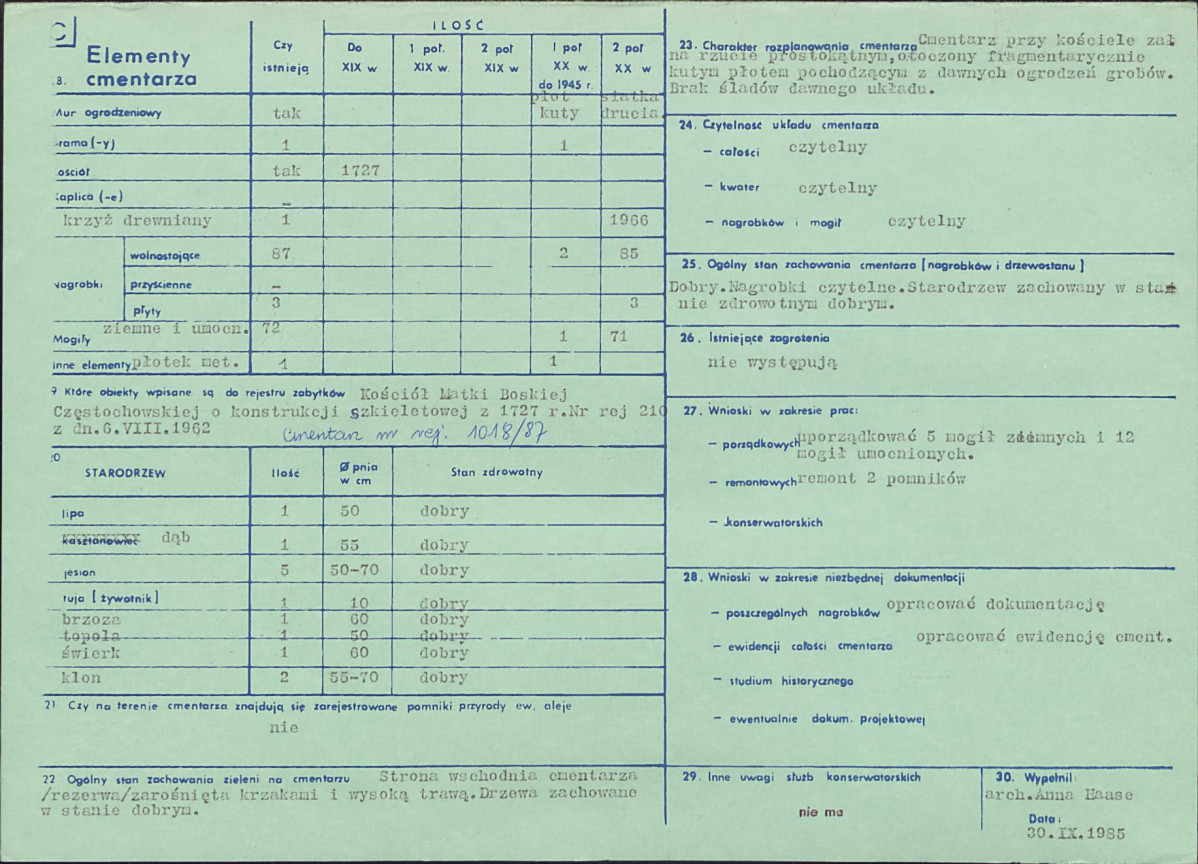 C
8. Elementy cmentarza
Czy istnieją
ILOŚĆ
Do XIX w
1 poł. XIX w.
2 poł XIX w
I poł XX w. do 1945 r.
2 poł XX w
Mur ogrodzeniowy tak płot kuty siatka drucia.
brama (-y) 1 1
kościół tak 1727
kaplica (-e) –
krzyż drewniany 1 1966
Nagrobki
wolnostojące 87 2 85
przyścienne –
płyty 3 3
Mogiły ziemne i umocn. 72 1 71
inne elementy płotek met. 1 1
9 Które obiekty wpisane są do rejestru zabytków Kościół Matki Boskiej
Częstochowskiej o konstrukcji szkieletowej z 1727 r.Nr rej 210
z dn.6.VIII.1962 Cmentarz nr rej. 1018/87
20
STARODRZEW Ilość Ø pnia w cm Stan zdrowotny
lipa 1 50 dobry
kasztanowiec dąb 1 55 dobry
jesion 5 50-70 dobry
tuja [żywotnik] 1 10 dobry
brzoza 1 60 dobry
topola 1 50 dobry
świerk 1 60 dobry
klon 2 55-70 dobry
21 Czy na terenie cmentarza znajdują się zarejestrowane pomniki przyrody ew. aleje
nie
22 Ogólny stan zachowania zieleni na cmentarzu Strona wschodnia cmentarza
/rezerwa/zarośnięta krzakami i wysoką trawą.Drzewa zachowane
w stanie dobrym.
23. Charakter rozplanowania cmentarza Cmentarz przy kościele zał
na rzucie prostokątnym,otoczony fragmentarycznie
kutym płotem pochodzącym z dawnych ogrodzeń grobów.
Brak śladów dawnego układu.
24. Czytelność układu cmentarza
– całości czytelny
– kwater czytelny
– nagrobków i mogił czytelny
25. Ogólny stan zachowania cmentarza [nagrobków i drzewostanu]
Dobry.Nagrobki czytelne.Starodrzew zachowany w sta
nie zdrowotnym dobrym.
26. Istniejące zagrożenia
nie występują
27. Wnioski w zakresie prac:
– porządkowych uporządkować 5 mogił ziemnych i 12
mogił umocnionych.
– remontowych remont 2 pomników
– konserwatorskich
28. Wnioski w zakresie niezbędnej dokumentacji
– poszczególnych nagrobków opracować dokumentację
– ewidencji całości cmentarza opracować ewidencję cment.
– studium historycznego
– ewentualnie dokum. projektowej
29. Inne uwagi służb konserwatorskich
nie ma
30. Wypełnił:
arch.Anna Haase
Data:
30.IX.1985